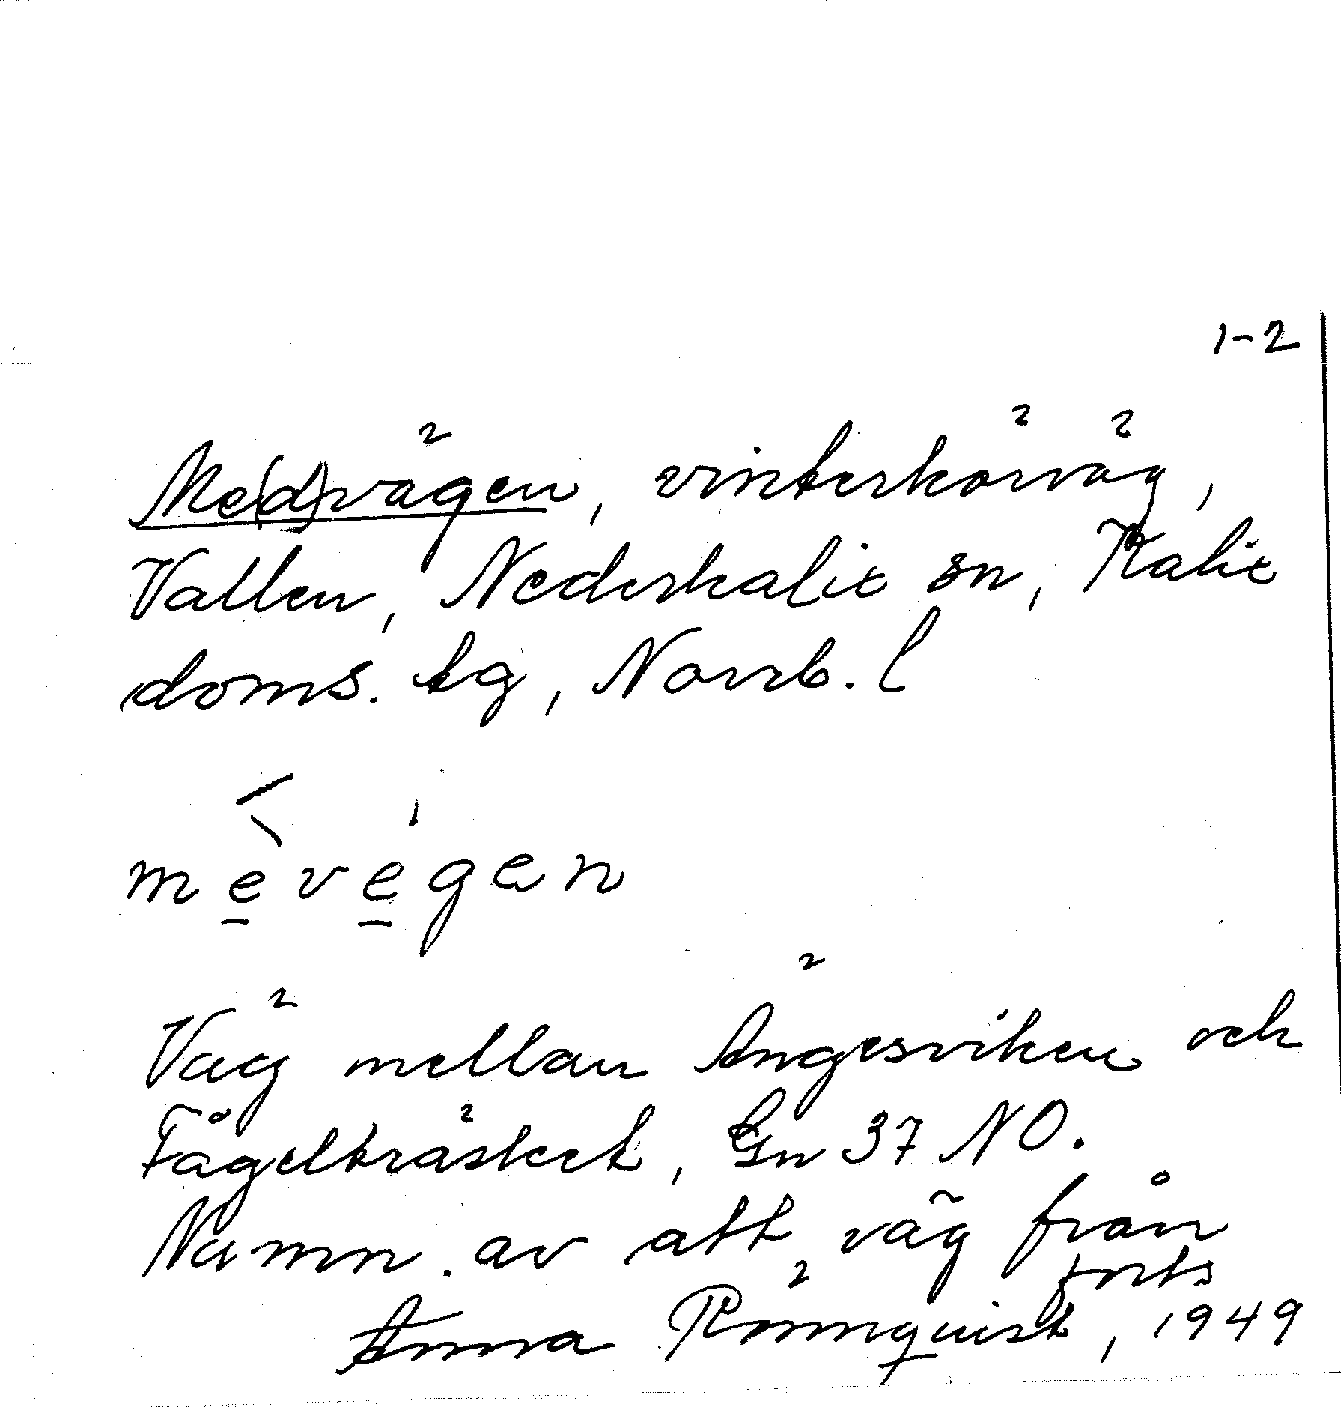 1-2
Me(d)vägen, vinterkörväg,
Vallen, Nederkalix sn, Kalix
doms. tg, Norrb. l
mevegen
Väg mellan Ängesviken och
Fågelträsket, Gn 37 NO.
Namn. av att väg från
forts
Anna Rönnquist, 1949